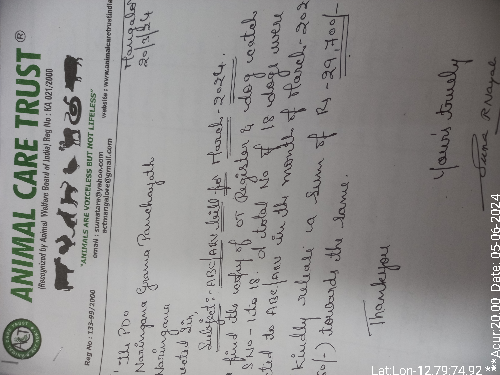 ANIMAL CARE TRUST®
(Recognized by Animal Welfare Board of India) Reg No : KA 021/2000
"ANIMALS ARE VOICELESS BUT NOT LIFELESS"
Reg No : 133-99/2000
email : sumatare@yahoo.com
website : www.animalcaretrustindia
actmangalore@gmail.com
Mangalo
20/3/24
the PDO
Naringana Grama Panchayath
Naringana
ected Sir,
Subject:- ABC/ARV bill for March-2024.
find the copy of OT Register & dog catch
S.No - 1 to 18. A total No of 18 dogs were
ted to ABC/ARV in the month of March-202
Kindly release a sum of Rs - 29,700/-
towards the same.
Thankyou
Your's truely
Lat Lon-12.79,74.92 ***Acur20.00 Date:05-06-2024